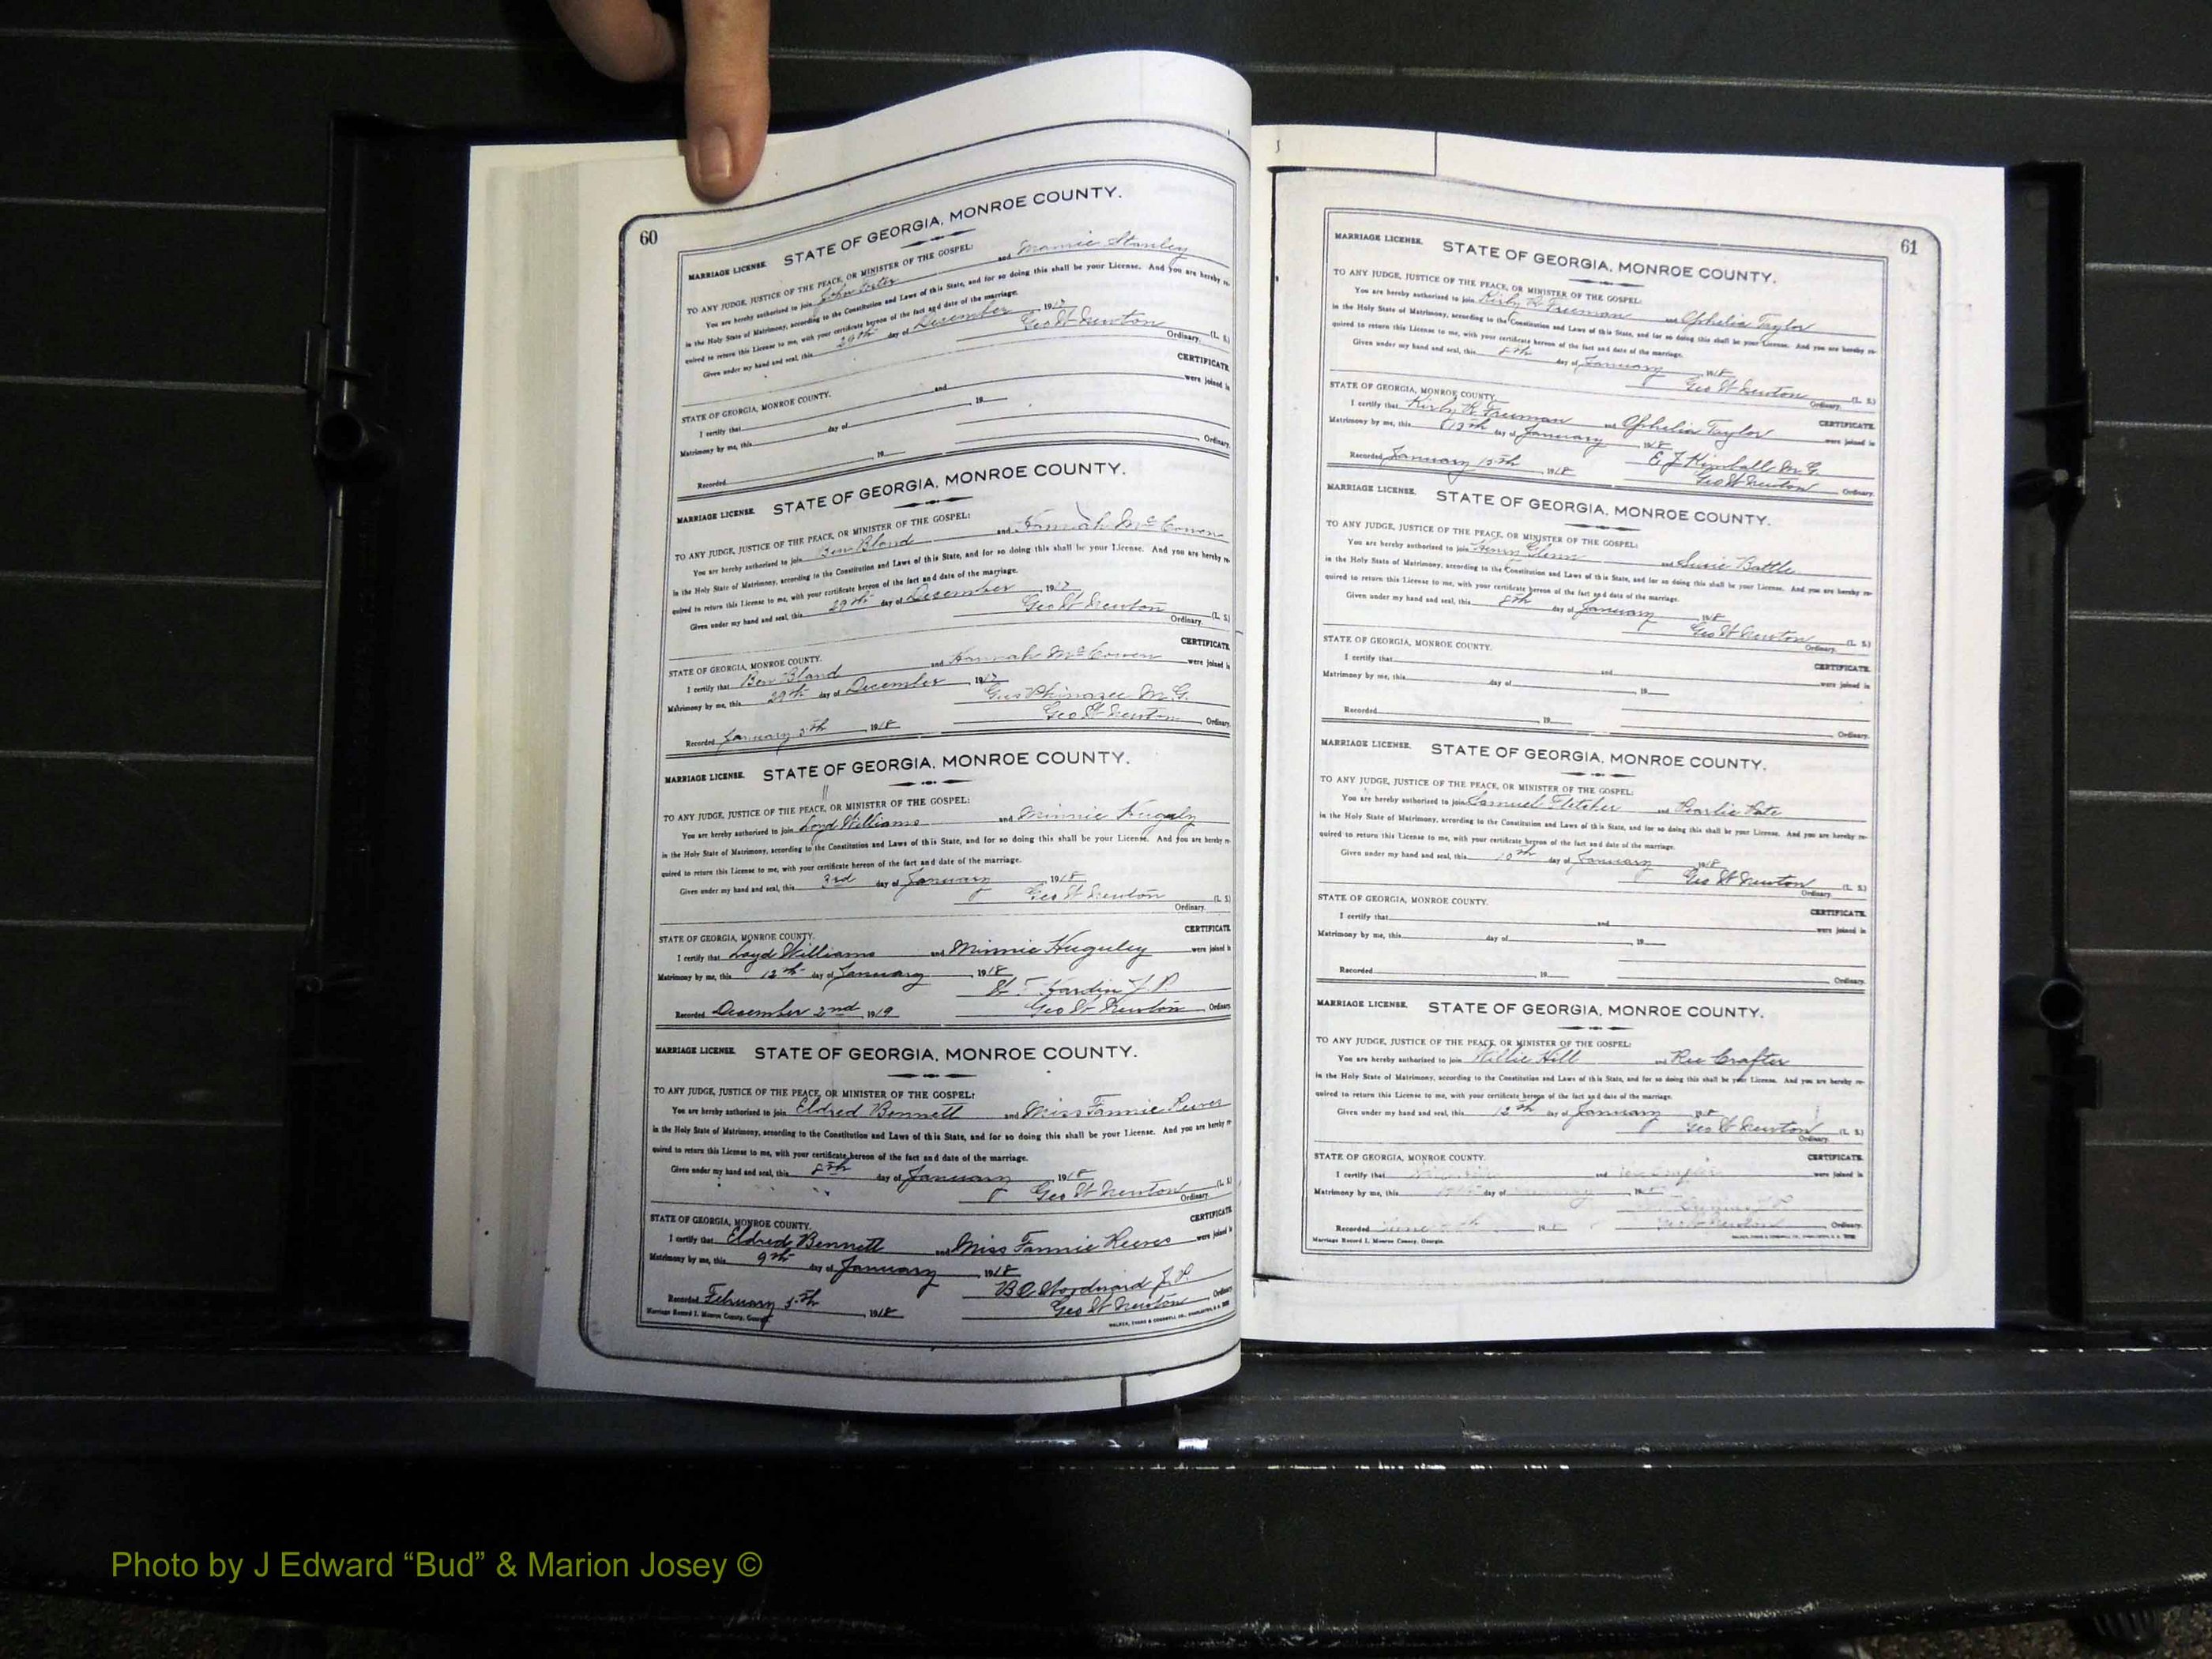 60
MARRIAGE LICENSE. STATE OF GEORGIA, MONROE COUNTY.
TO ANY JUDGE, JUSTICE OF THE PEACE, OR MINISTER OF THE GOSPEL:
You are hereby authorized to join John and Mamie Stanley
in the Holy State of Matrimony, according to the Constitution and Laws of this State, and for so doing this shall be your License. And you are hereby re-
quired to return this License to me, with your certificate hereon of the fact and date of the marriage.
Given under my hand and seal, this 29th day of December 1917
Geo W Newton (L. S.)
Ordinary.
STATE OF GEORGIA, MONROE COUNTY. CERTIFICATE
I certify that and were joined in
Matrimony by me, this day of , 19
Recorded , 19 Ordinary.
MARRIAGE LICENSE. STATE OF GEORGIA, MONROE COUNTY.
TO ANY JUDGE, JUSTICE OF THE PEACE, OR MINISTER OF THE GOSPEL:
You are hereby authorized to join Ben Bland and Hannah McCowen
in the Holy State of Matrimony, according to the Constitution and Laws of this State, and for so doing this shall be your License. And you are hereby re-
quired to return this License to me, with your certificate hereon of the fact and date of the marriage.
Given under my hand and seal, this 29th day of December 1917
Geo W Newton (L. S.)
Ordinary.
STATE OF GEORGIA, MONROE COUNTY. CERTIFICATE
I certify that Ben Bland and Hannah McCowen were joined in
Matrimony by me, this 29th day of December , 1917
Gus Phinazee M.G.
Recorded January 5th , 1918 Geo W Newton Ordinary.
MARRIAGE LICENSE. STATE OF GEORGIA, MONROE COUNTY.
TO ANY JUDGE, JUSTICE OF THE PEACE, OR MINISTER OF THE GOSPEL:
You are hereby authorized to join Loyd Williams and Minnie Huguly
in the Holy State of Matrimony, according to the Constitution and Laws of this State, and for so doing this shall be your License. And you are hereby re-
quired to return this License to me, with your certificate hereon of the fact and date of the marriage.
Given under my hand and seal, this 3rd day of January 1918
Geo W Newton (L. S.)
Ordinary.
STATE OF GEORGIA, MONROE COUNTY. CERTIFICATE
I certify that Loyd Williams and Minnie Huguley were joined in
Matrimony by me, this 12th day of January , 1918
Hardin J.P.
Recorded December 2nd 1919 Geo W Newton Ordinary
MARRIAGE LICENSE. STATE OF GEORGIA, MONROE COUNTY.
TO ANY JUDGE, JUSTICE OF THE PEACE, OR MINISTER OF THE GOSPEL:
You are hereby authorized to join Eldred Bennett and Miss Fannie Reeves
in the Holy State of Matrimony, according to the Constitution and Laws of this State, and for so doing this shall be your License. And you are hereby re-
quired to return this License to me, with your certificate hereon of the fact and date of the marriage.
Given under my hand and seal, this 8th day of January 1918
Geo W Newton (L. S.)
Ordinary.
STATE OF GEORGIA, MONROE COUNTY. CERTIFICATE
I certify that Eldred Bennett and Miss Fannie Reeves were joined in
Matrimony by me, this 9th day of January , 1918
Woodward J.P.
Recorded February 5th , 1918 Geo W Newton Ordinary
Marriage Record I, Monroe County, Georgia.
61
MARRIAGE LICENSE. STATE OF GEORGIA, MONROE COUNTY.
TO ANY JUDGE, JUSTICE OF THE PEACE, OR MINISTER OF THE GOSPEL:
You are hereby authorized to join Kirby R Freeman and Ophelia Taylor
in the Holy State of Matrimony, according to the Constitution and Laws of this State, and for so doing this shall be your License. And you are hereby re-
quired to return this License to me, with your certificate hereon of the fact and date of the marriage.
Given under my hand and seal, this 8th day of January , 1918
Geo W Newton (L. S.)
Ordinary.
STATE OF GEORGIA, MONROE COUNTY. CERTIFICATE
I certify that Kirby R Freeman and Ophelia Taylor were joined in
Matrimony by me, this 13th day of January , 1918
E J Kimball M.G.
Recorded January 15th , 1918 Geo W Newton Ordinary
MARRIAGE LICENSE. STATE OF GEORGIA, MONROE COUNTY.
TO ANY JUDGE, JUSTICE OF THE PEACE, OR MINISTER OF THE GOSPEL:
You are hereby authorized to join Henry Glenn and Susie Battle
in the Holy State of Matrimony, according to the Constitution and Laws of this State, and for so doing this shall be your License. And you are hereby re-
quired to return this License to me, with your certificate hereon of the fact and date of the marriage.
Given under my hand and seal, this 8th day of January , 1918
Geo W Newton (L. S.)
Ordinary.
STATE OF GEORGIA, MONROE COUNTY. CERTIFICATE
I certify that and were joined in
Matrimony by me, this day of , 19
Recorded 19 Ordinary.
MARRIAGE LICENSE. STATE OF GEORGIA, MONROE COUNTY.
TO ANY JUDGE, JUSTICE OF THE PEACE, OR MINISTER OF THE GOSPEL:
You are hereby authorized to join Samuel Fletcher and Pearlie Pate
in the Holy State of Matrimony, according to the Constitution and Laws of this State, and for so doing this shall be your License. And you are hereby re-
quired to return this License to me, with your certificate hereon of the fact and date of the marriage.
Given under my hand and seal, this 10th day of January 1918
Geo W Newton (L. S.)
Ordinary.
STATE OF GEORGIA, MONROE COUNTY. CERTIFICATE
I certify that and were joined in
Matrimony by me, this day of 19
Recorded 19 Ordinary.
MARRIAGE LICENSE. STATE OF GEORGIA, MONROE COUNTY.
TO ANY JUDGE, JUSTICE OF THE PEACE, OR MINISTER OF THE GOSPEL:
You are hereby authorized to join Willie Hill and Crafter
in the Holy State of Matrimony, according to the Constitution and Laws of this State, and for so doing this shall be your License. And you are hereby re-
quired to return this License to me, with your certificate hereon of the fact and date of the marriage.
Given under my hand and seal, this 12th day of January 1918
Geo W Newton (L. S.)
Ordinary.
STATE OF GEORGIA, MONROE COUNTY. CERTIFICATE
I certify that and were joined in
Matrimony by me, this day of , 19
Recorded 19 Ordinary
Marriage Record I, Monroe County, Georgia.
Photo by J Edward “Bud” & Marion Josey ©